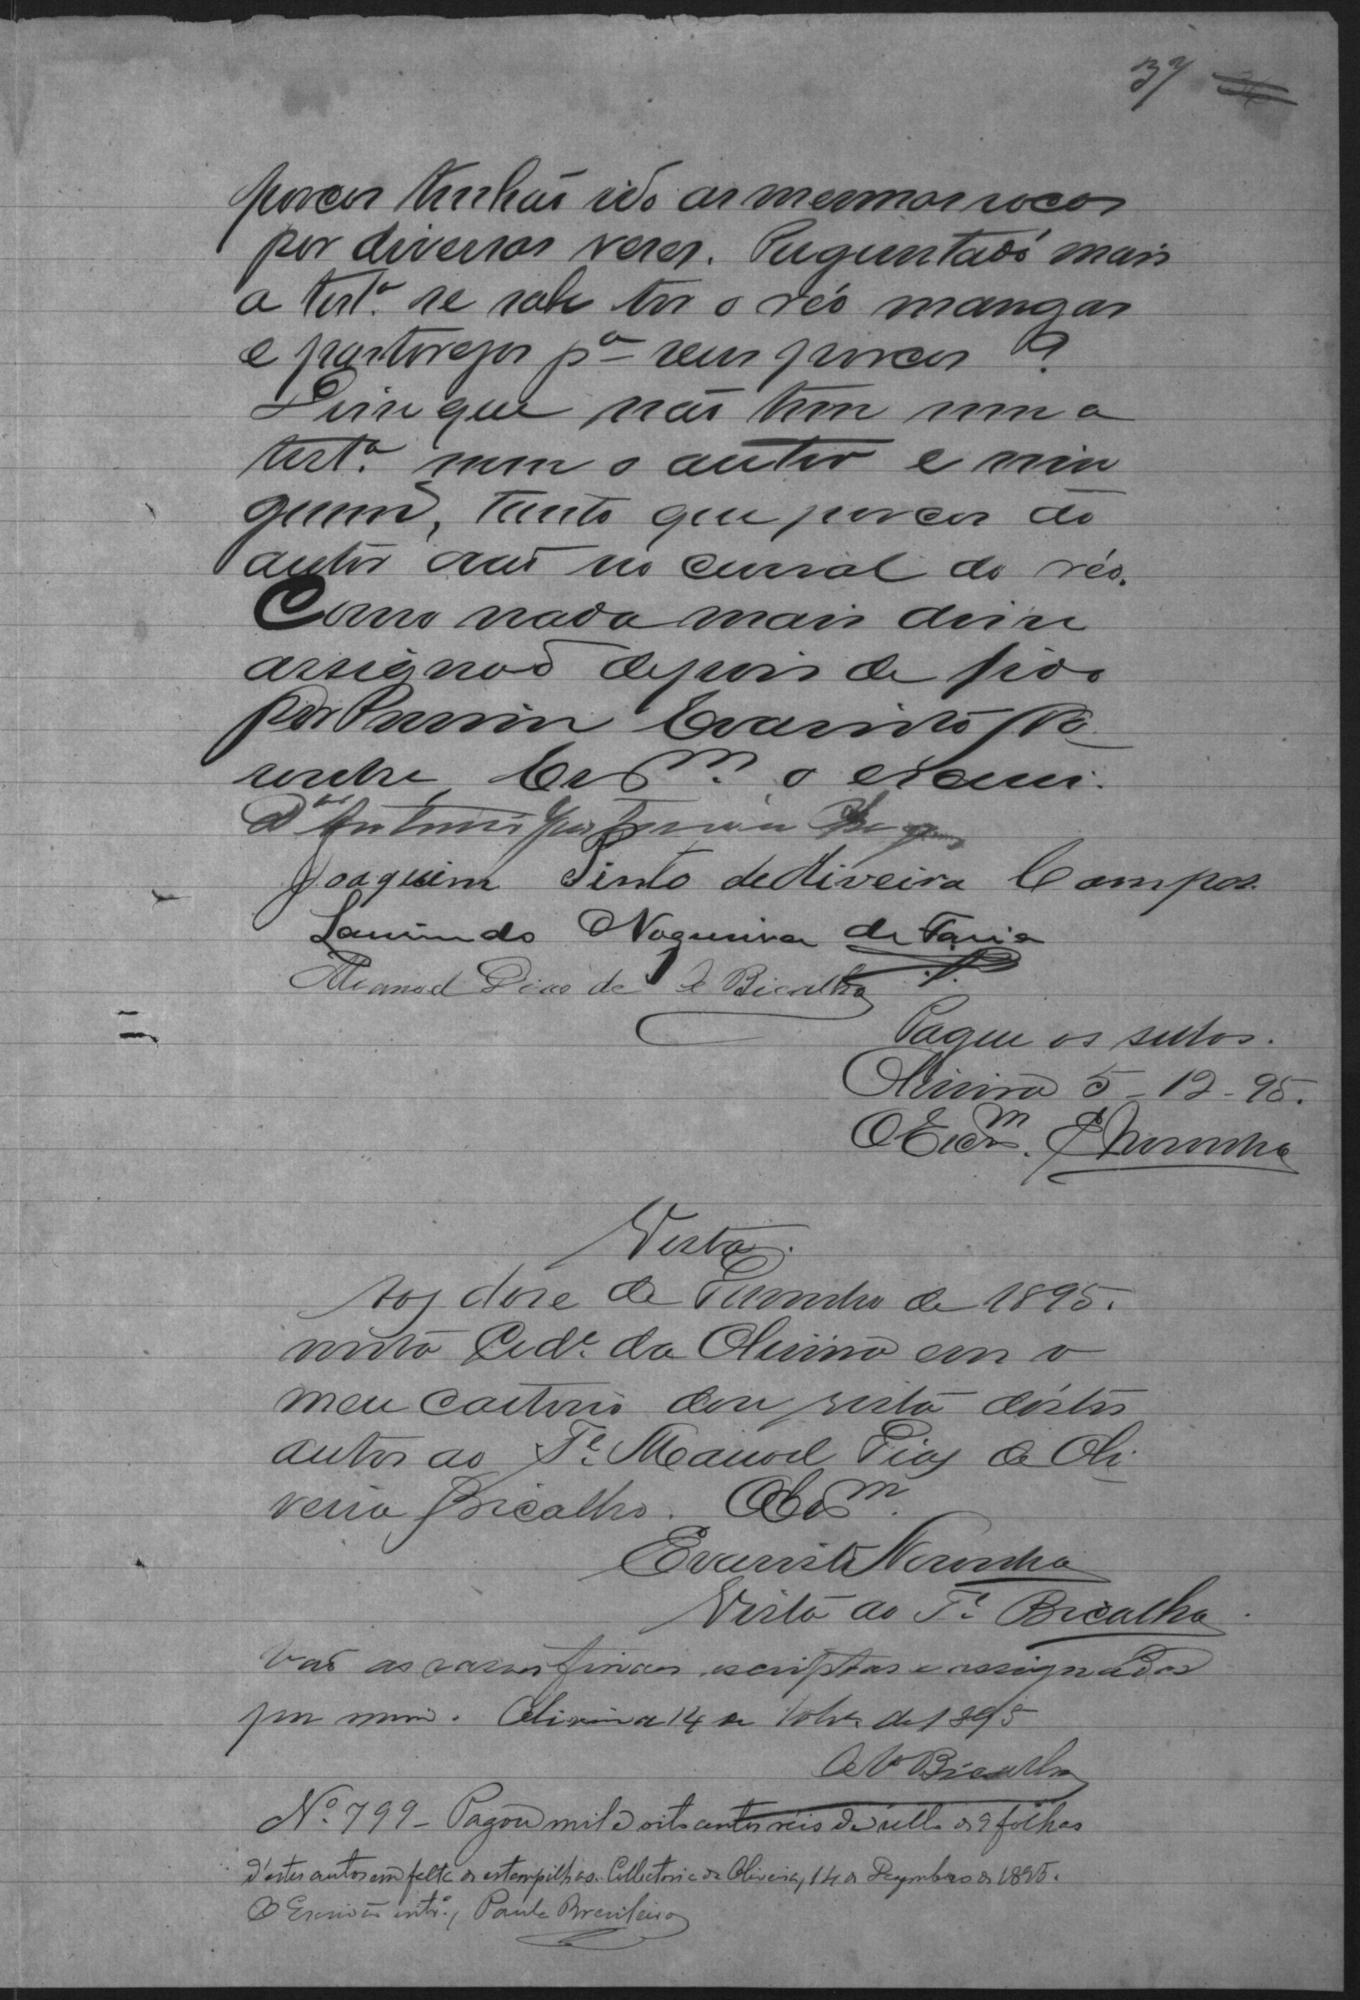 37
porcos tenhão ido as mesmas rocas
por diversas veses. Preguntado mais
a test.ª se sabe ter o réo mangas
e pastorejos p.ª seus porcos?
Disse que não tem nem a
test.ª nem o autor e nin
guem, tanto que porcos do
autor vão no curral do réo.
Como nada mais disse
assignão depois de lido
por mim Evaristo No
ronha, Escr.m o escrevi.
Joaquim Pinto de Oliveira Campos.
Laurindo Nogueira de Faria
Manoel Dias de O Bicalho
Pague os sellos.
Oliveira 5-12-95.
O Escr.m E Noronha
Vista.
Aos dose de de 1895.
nesta Cid.e da Oliveira em o
meu cartorio dou vista d'estes
autos ao T.e Manoel Dias de Oli
veira Bicalho. O Escr.m
Evaristo Noronha
Vista ao T.e Bicalho.
Vão as rasões finaes escriptas e assignadas
por mim. Oliveira 14 de de 1895
Bicalho
N.º 799 - Pagou mil e oito centos reis de sello de 9 folhas
d'estes autos em falta de estampilhas. Collectoria de Oliveira, 14 de Dezembro de 1895.
O Escrivão int.º, Paula Brasileiro